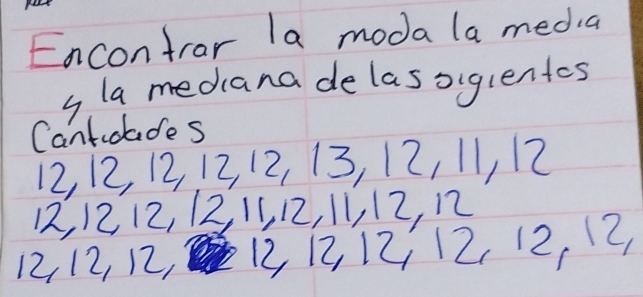 Encontrar la moda la media
y la mediana de las sigientes
Cantidades
12, 12, 12, 12, 12, 13, 12, 11, 12
12, 12, 12, 12, 11, 12, 11, 12, 12
12, 12, 12, 12, 12, 12, 12, 12, 12,